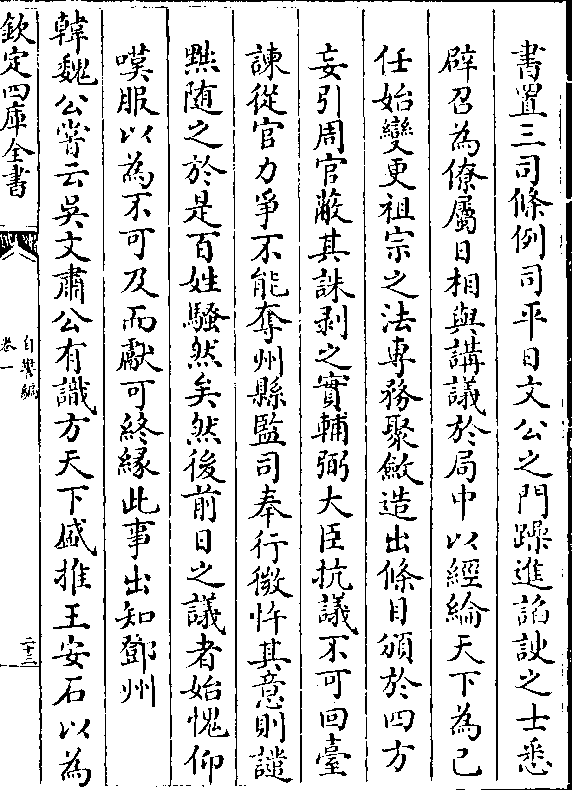 書置三司條例司平日文公之門躁進諂諛之士悉
辟召為僚屬日相與講議於局中以經綸天下為己
任始變更祖宗之法專務聚斂造出條目頒於四方
妄引周官蔽其誅剥之實輔弼大臣抗議不可回臺
諫從官力爭不能奪州縣監司奉行微忤其意則譴
黜随之於是百姓騷然矣然後前日之議者始愧仰
嘆服以為不可及而獻可終緣此事出知鄧州
韓魏公嘗云吳文肅公有識方天下盛推王安石以為
欽定四庫全書
自警編
卷一
二十三